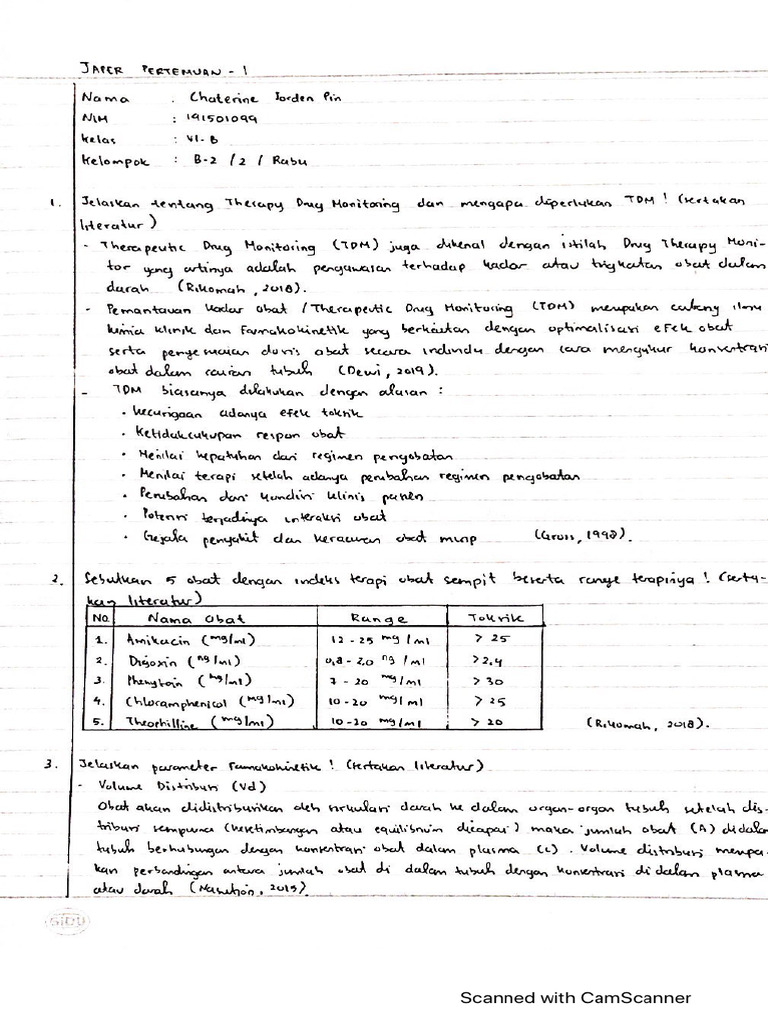 JAPER PERTEMUAN - 1
Nama : Chaterine Jorden Pin
NIM : 191501099
Kelas : VI-B
Kelompok : B-2 / 2 / Rabu
1. Jelaskan tentang Therapy Drug Monitoring dan mengapa diperlukan TDM ! (sertakan
literatur)
- Therapeutic Drug Monitoring (TDM) juga dikenal dengan istilah Drug Therapy Moni-
tor yang artinya adalah pengawasan terhadap kadar atau tingkatan obat dalam
darah (Rikomah, 2018).
- Pemantauan kadar obat / Therapeutic Drug Monitoring (TDM) merupakan cabang ilmu
kimia klinik dan farmakokinetik yang berkaitan dengan optimalisasi efek obat
serta penyesuaian dosis obat secara individu dengan cara mengukur konsentrasi
obat dalam cairan tubuh (Dewi, 2019).
- TDM biasanya dilakukan dengan alasan :
• Kecurigaan adanya efek toksik
• Ketidakcukupan respon obat
• Menilai kepatuhan dari regimen pengobatan
• Menilai terapi setelah adanya perubahan regimen pengobatan
• Perubahan dari kondisi klinis pasien
• Potensi terjadinya interaksi obat
• Gejala penyakit dan keracunan obat mirip (Gross, 1998).
2. Sebutkan 5 obat dengan indeks terapi obat sempit beserta range terapinya ! (serta-
kan literatur)
No. Nama Obat Range Toksik
1. Amikacin (mg/ml) 12 - 25 mg/ml > 25
2. Digoxin (ng/ml) 0,8 - 2,0 ng/ml > 2,4
3. Phenytoin (mg/ml) 7 - 20 mg/ml > 30
4. Chloramphenicol (mg/ml) 10 - 20 mg/ml > 25
5. Theophilline (mg/ml) 10 - 20 mg/ml > 20
(Rikomah, 2018).
3. Jelaskan parameter farmakokinetik ! (sertakan literatur)
- Volume Distribusi (Vd)
Obat akan didistribusikan oleh sirkulasi darah ke dalam organ-organ tubuh setelah dis-
tribusi sempurna (kesetimbangan atau equilibrium dicapai) maka jumlah obat (A) didalam
tubuh berhubungan dengan konsentrasi obat dalam plasma (C). Volume distribusi merupa-
kan perbandingan antara jumlah obat di dalam tubuh dengan konsentrasi di dalam plasma
atau darah (Nasution, 2015).
SIDU
Scanned with CamScanner